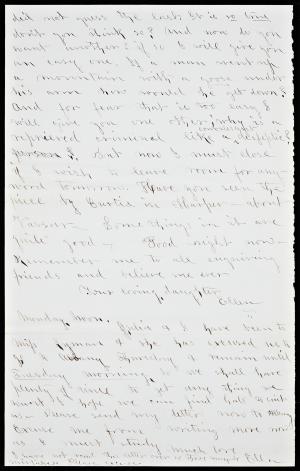 did not guess the last. It is so true
don't you think so? And now do you
want another? if so I will give you
an easy one. If a man went up
a mountain with a goose under
his arm how would he get down?
And for fear that is too easy I
will give you one other, why is a
reprieved criminal like a
person? But now I must close
if I wish to leave room for any
word tomorrow. Have you seen the
piece by Curtis in Harper- about
Vassar- Some things in it are
quite good- Good night now-
Remember me to all enquiring
friends and believe me ever
Your loving daughter
Ellen
Monday Noon. I have been to
Miss Lyman & she has excused me
to go Thursday & remain until
Tuesday morning, so we shall have
plenty of time to get any thing we
want. I hope we can find
us- Shall send my letter now to
Excuse me from writing more now
as I must study much love
I have not read this letter over so Ellen
mistakes